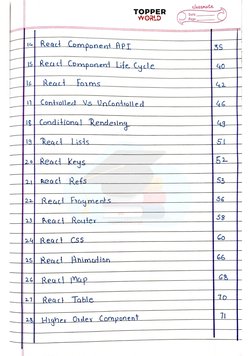 TOPPER
WORLD
classmate
Date
Page
14 React Component API 35
15 React Component Life Cycle 40
16 React Forms 42
17 Controlled Vs UnControlled 46
18 Conditional Rendering 49
19 React Lists 51
20 React Keys 52
21 React Refs 53
22 React Fragments 56
23 React Router 58
24 React CSS 60
25 React Animation 66
26 React Map 68
27 React Table 70
28 Higher Order Component 71